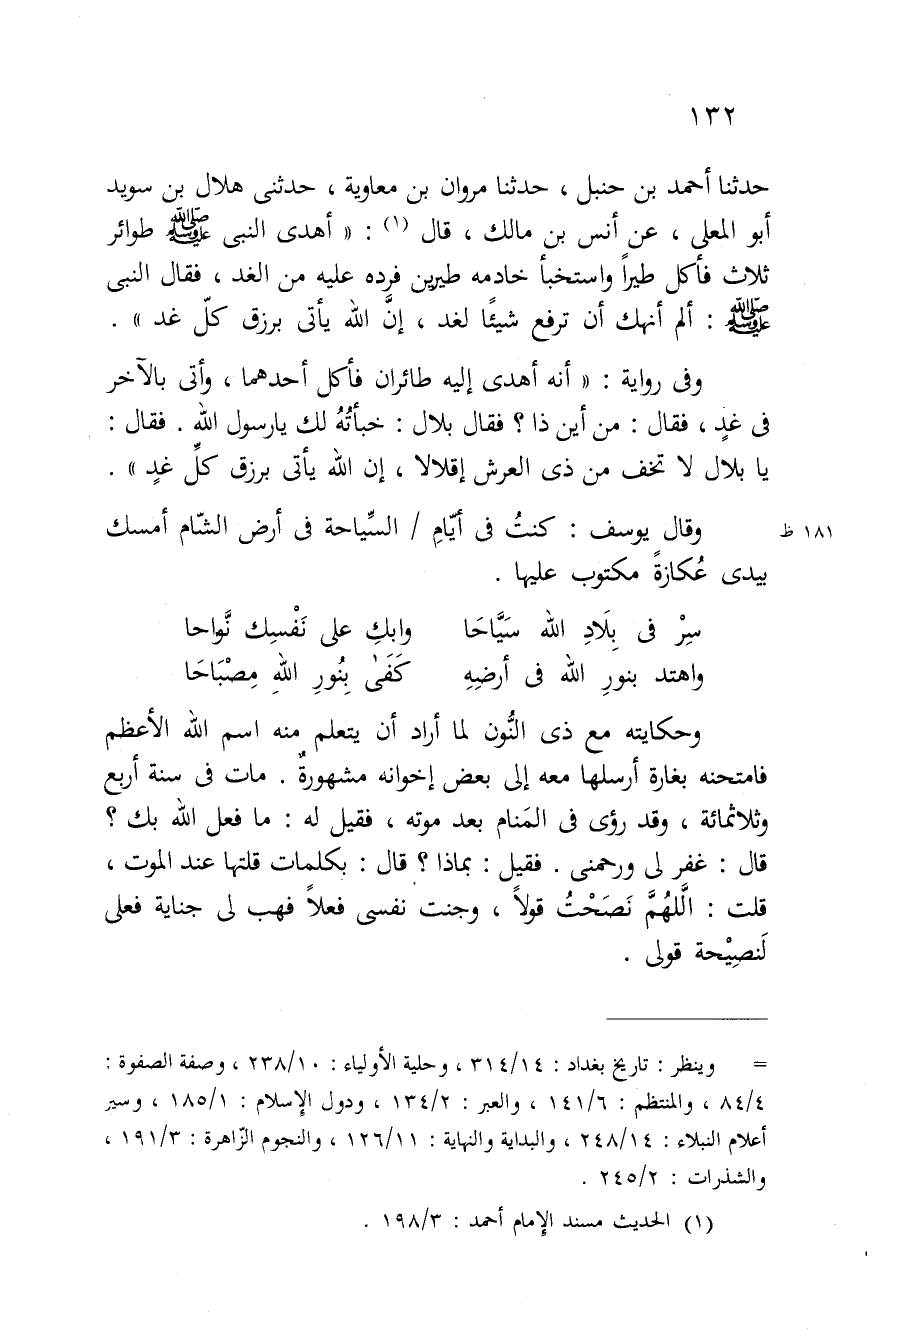 ١٣٢
حدثنا أحمد بن حنبل ، حدثنا مروان بن معاوية ، حدثنى هلال بن سويد
أبو المعلى ، عن أنس بن مالك ، قال (١) : « أهدى النبى ﷺ طوائر
ثلاث فأكل طيراً واستخبأ خادمه طيرين فرده عليه من الغد ، فقال النبى
ﷺ : ألم أنهك أن ترفع شيئًا لغد ، إنَّ الله يأتى برزق كلّ غد » .
وفى رواية : « أنه أهدى إليه طائران فأكل أحدهما ، وأتى بالآخر
فى غدٍ ، فقال : من أين ذا ؟ فقال بلال : خبأتُهُ لك يارسول الله . فقال :
يا بلال لا تخف من ذى العرش إقلالا ، إن الله يأتى برزق كلِّ غدٍ » .
وقال يوسف : كنتُ فى أيّامِ / السِّياحة فى أرض الشّام أمسك ١٨١ ظ
بيدى عُكازةً مكتوب عليها .
سِرْ فى بِلَادِ الله سَيَّاحَا وابكِ على نَفْسِك نَّواحا
واهتد بنورِ الله فى أرضِهِ كَفَىٰ بِنُورِ اللهِ مِصْبَاحَا
وحكايته مع ذى النُّون لما أراد أن يتعلم منه اسم الله الأعظم
فامتحنه بغارة أرسلها معه إلى بعض إخوانه مشهورةٌ . مات فى سنة أربع
وثلاثمائة ، وقد رؤى فى المَنام بعد موته ، فقيل له : ما فعل الله بك ؟
قال : غفر لى ورحمنى . فقيل : بماذا ؟ قال : بكلمات قلتها عند الموت ،
قلت : الَّلهُمَّ نَصَحْتُ قولاً ، وجنت نفسى فعلاً فهب لى جناية فعلى
لَنصِيْحة قولى .
= وينظر : تاريخ بغداد : ٣١٤/١٤ ، وحلية الأولياء : ٢٣٨/١٠ ، وصفة الصفوة :
٨٤/٤ ، والمنتظم : ١٤١/٦ ، والعبر : ١٣٤/٢ ، ودول الإسلام : ١٨٥/١ ، وسير
أعلام النبلاء : ٢٤٨/١٤ ، والبداية والنهاية : ١٢٦/١١ ، والنجوم الزّاهرة : ١٩١/٣ ،
والشذرات : ٢٤٥/٢ .
(١) الحديث مسند الإمام أحمد : ١٩٨/٣ .